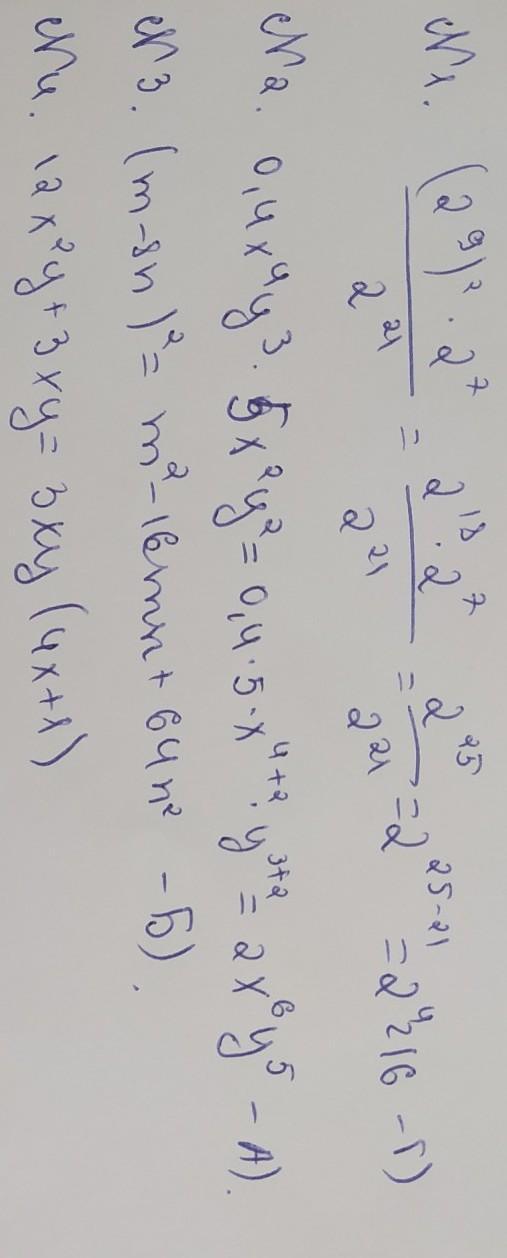 №1. (2⁹)² · 2⁷ / 2²¹ = 2¹⁸ · 2⁷ / 2²¹ = 2²⁵ / 2²¹ = 2²⁵⁻²¹ = 2⁴ = 16 – Г)
№2. 0,4x⁴y³ · 5x²y² = 0,4 · 5 · x⁴⁺² · y³⁺² = 2x⁶y⁵ – А).
№3. (m – 8n)² = m² – 16mn + 64n² – Б).
№4. 12x²y + 3xy = 3xy(4x + 1)